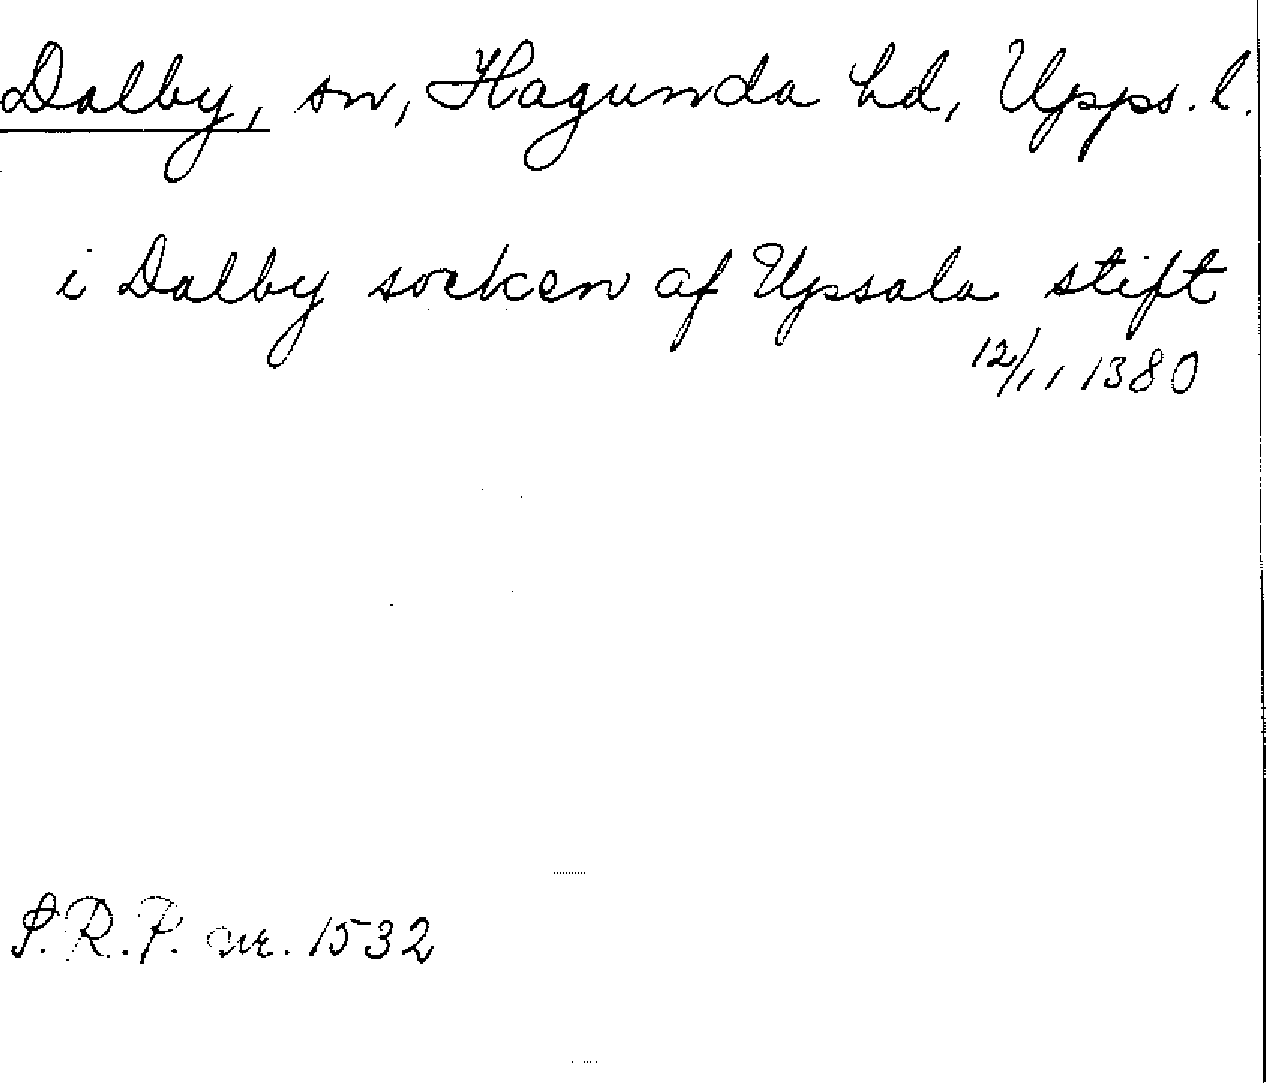 Dalby, sn, Hagunda hd, Upps. l.
i Dalby socken af Upsala stift
12/11 1380
S.R.P. nr. 1532